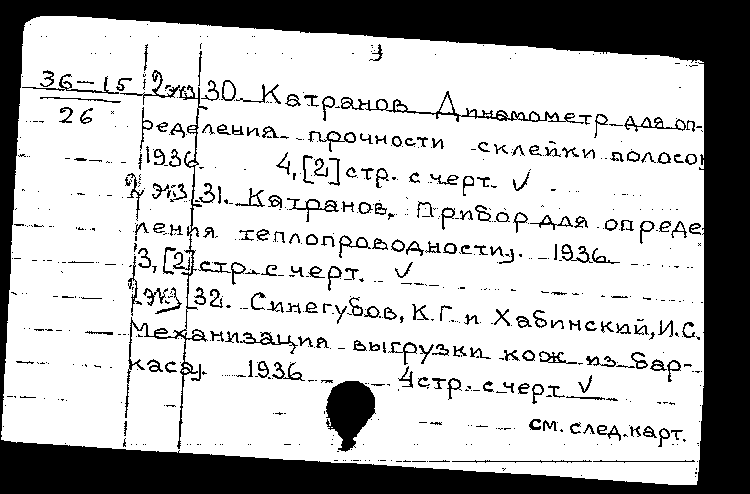 9
36-15 2 экз 30. Катранов Динамометр для оп-
26
ределения прочности склейки полосок
1936 4,[2] стр. с черт. ✓
2 экз 31. Катранов. Прибор для опреде-
ления теплопроводности. 1936.
3,[2] стр. с черт. ✓
2 экз 32. Синегубов, К.Г. и Хабинский, И.С.
Механизация выгрузки кож из бар-
каса. 1936 4 стр. с черт ✓
см. след. карт.